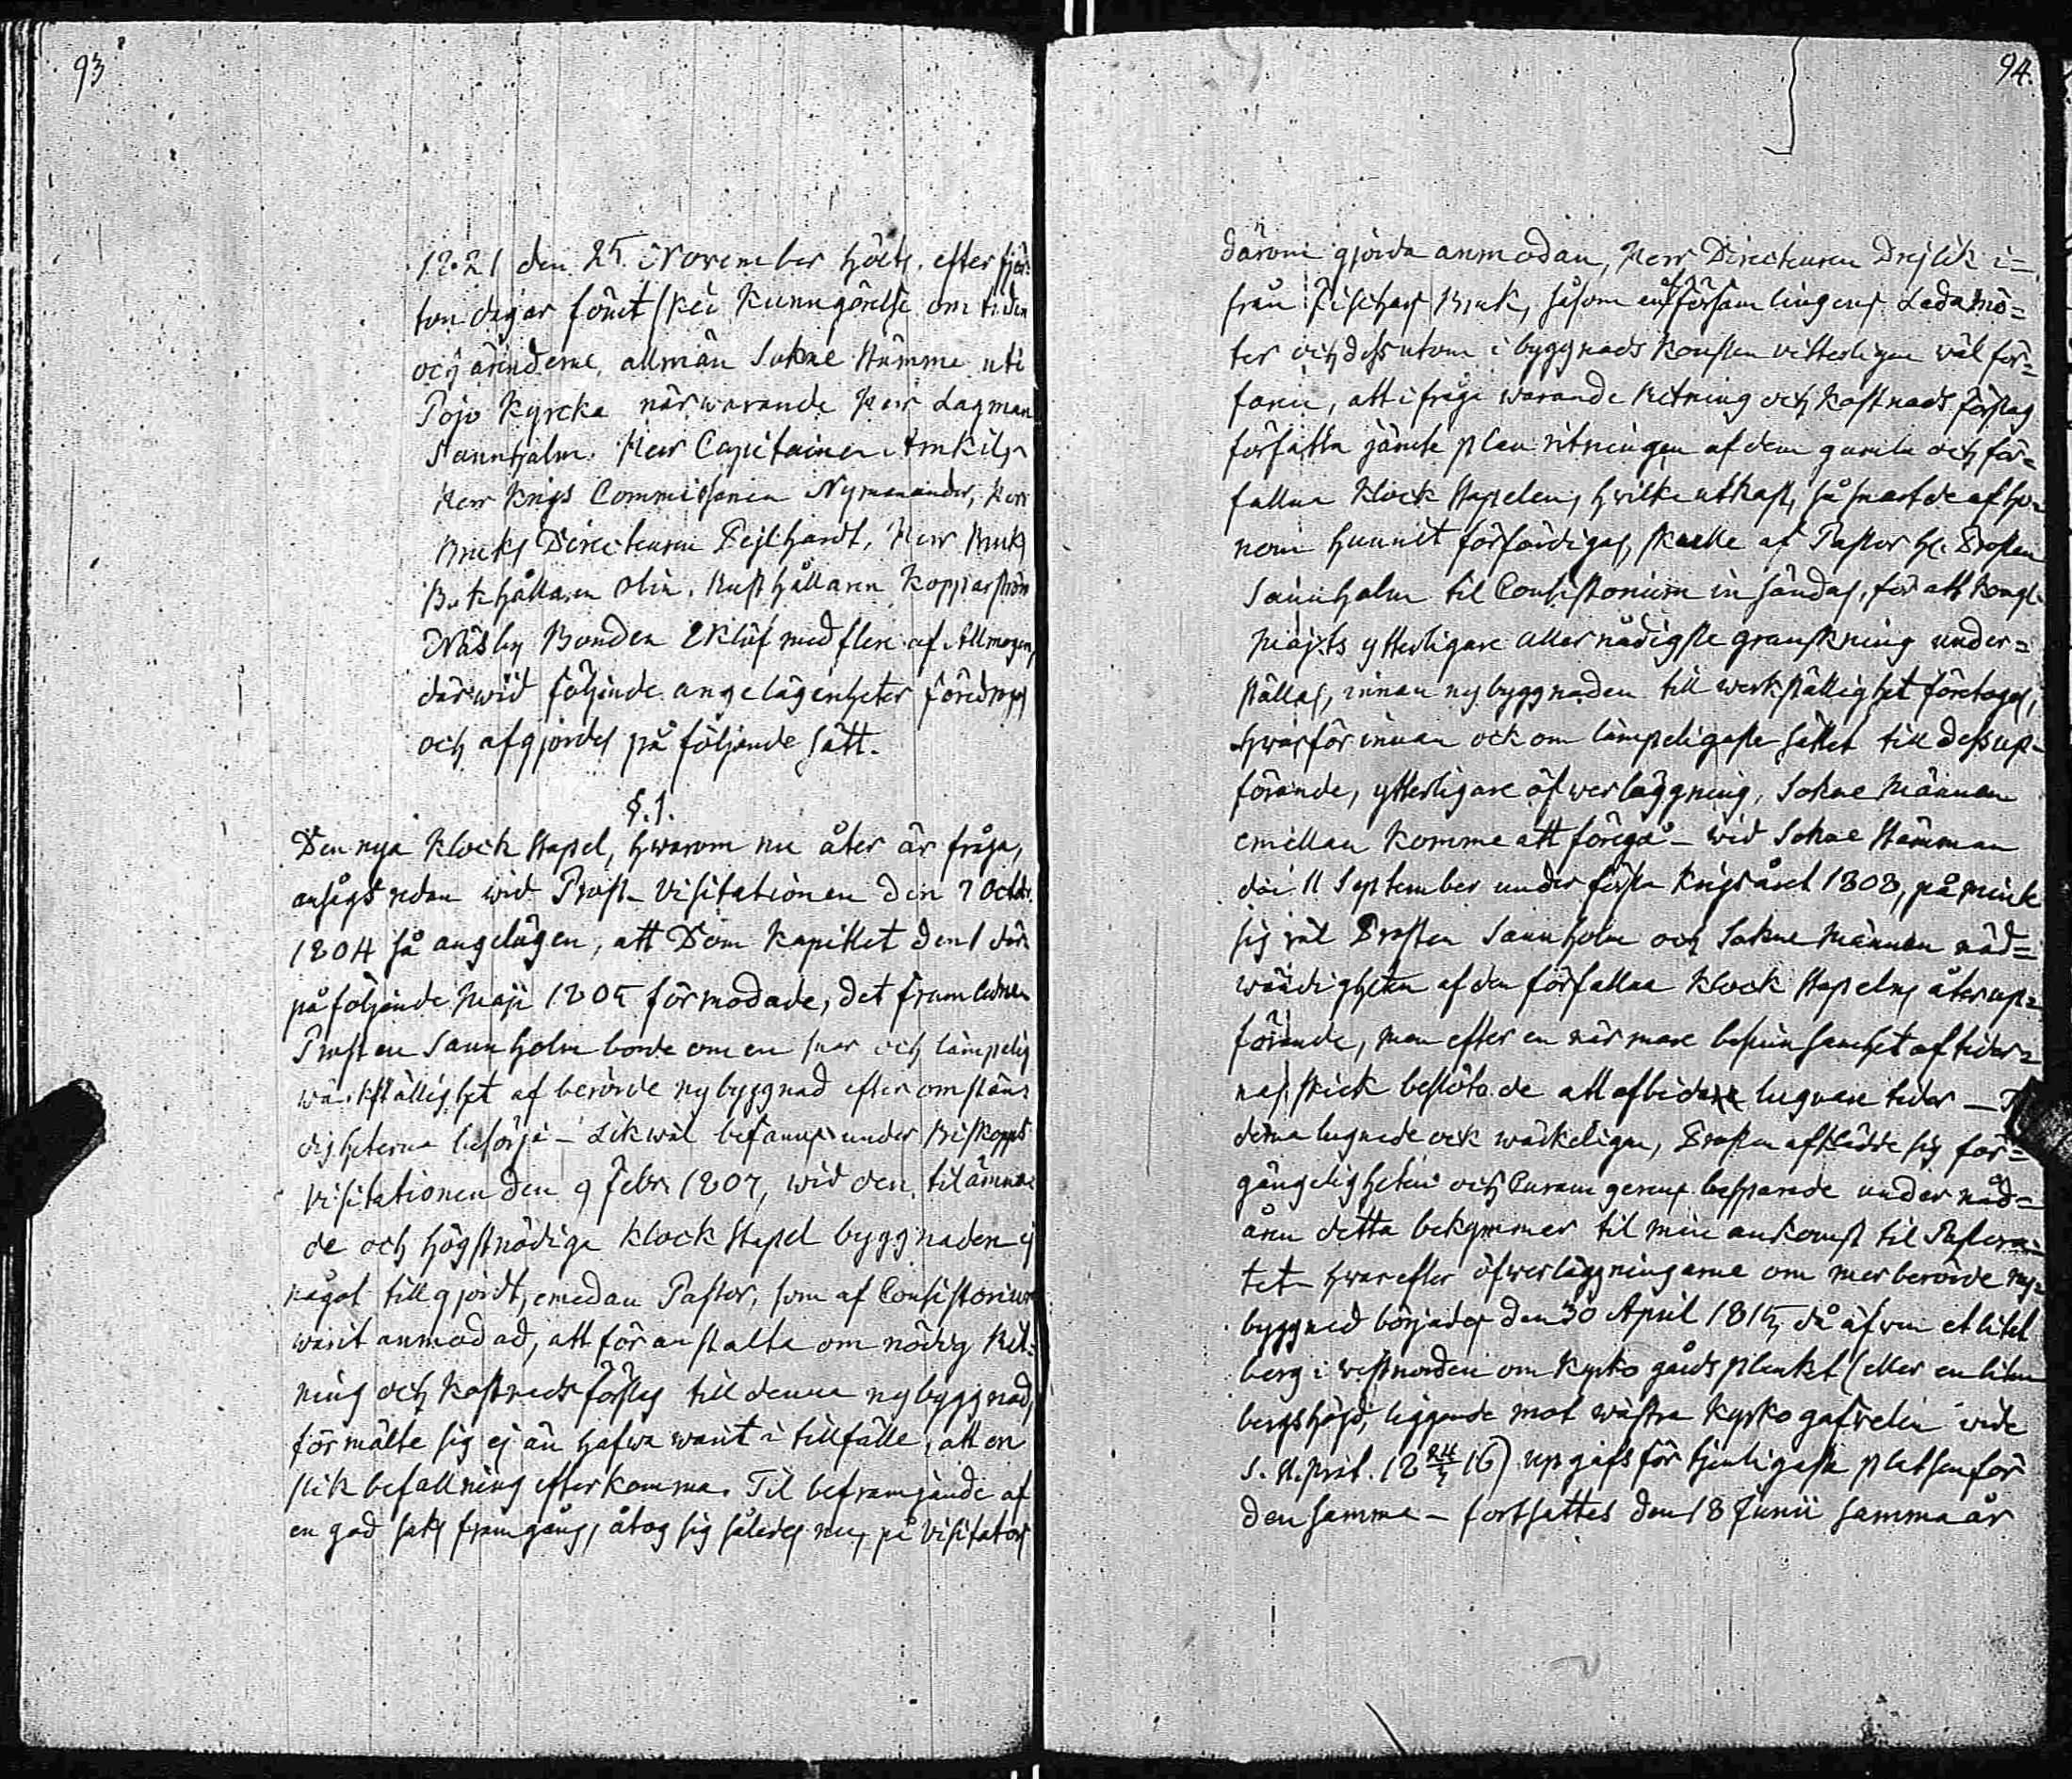 93
1821 den 25 November hölts, efter fjor-
ton dagar förut skei kunngörelse om tiden
och ärinderne, allmän Sokne Stämma uti
Pojo Kyrcka närwarande Herr Lagman
Sannhjalm. Herr Capitainen Armkihl
Herr Krigs Commissarien Nymanander, Herr
Bruks Directeuren Dejlhardt, Herr Bruks
Bokhållaren Olin. Rusthållaren Kopparström
Näsby Bonden Eklöf med flere af Allmogen,
därwid följande angelägenheter föredrogs
och afgjordes på följande sätt.
§. 1.
Den nya Klock Stapel, hwarom nu åter är fråga,
ansågs redan wid Prost-Visitationen den 7 Octobr.
1804 så angelägen, att Dom Kapitlet den 1 där
påföljande Maji 1805 förmodade, det framledne
Prosten Sannholm borde om en snar och lämpelig
wärkställighet af berörde nybyggnad efter omstän-
digheterna besörja – Likwäl befanns under Biskopps
Visitationen den 9 Febr. 1807, wid den tilämna-
de och högstnödiga Klock Stapel byggnaden ej
något tillgjordt, emedan Pastor, som af Consistorium
warit anmodad, att föranstalta om nödig Rit-
ning och Kostnads förslag till denna nybyggnad,
förmälte sig ej än hafwa warit i tillfälle, att en
slik befallning efterkomma. Til befrämjande af
en god saks framgång, åtog sig således nu, på Visitators

94.
därom gjorda anmodan, Herr Directeuren Drejlik i-
från Fiskars Bruk, såsom en af församlingens Ledamö-
ter och dessutom i byggnads Konsten vitterligen wäl för-
faren, att ifråga warande Ritning och Kostnads förslag
författa jämte plan ritningen af den gamla och för-
fallna Klock Stapelen, hvilka utkast, så snart de af ho-
nom hunnit förfärdigas, skulle af Pastor Hr. Prosten
Sannholm til Consistorium insändas, för att Kongl.
Maj:ts ytterligare aller nådigste granskning under-
ställas, innan nybyggnaden till werkställighet företoges,
hwarförinnan ock om lämpeligaste sättet till dess upp-
förande, ytterligare öfwerläggning, Sokne Männen
emellan komme att föregå – wid Sokne Stämman
den 11 September under första Krigsåret 1808, påminte
sig wäl Prosten Sannholm och Sokne Männen nöd-
wändigheten af den förfallna Klock Stapelns återupp-
förande, men efter en närmare besinsamhet af tider-
nas skick beslöto de att afbida lugnare tider –
derna lugnade ock wärkeligen, Prosten afklädde sig för-
gängligheten och Curam gerens bespparade under nåd-
åren detta bekymmer til min ankomst til Pastora-
tet – hwarefter öfwerläggningarne om merberörde ny-
byggnad börjades den 30 April 1815, då äfwen et litet
berg i westnorden om Kyrko gårds planket (eller en liten
bergshöjd, liggande mot wästra Kyrko gafwelen vide
S. St. Prot. 18 24/4 16) uppgafs för tjenligaste platsen för
densamma – fortsattes den 18 Junii samma år